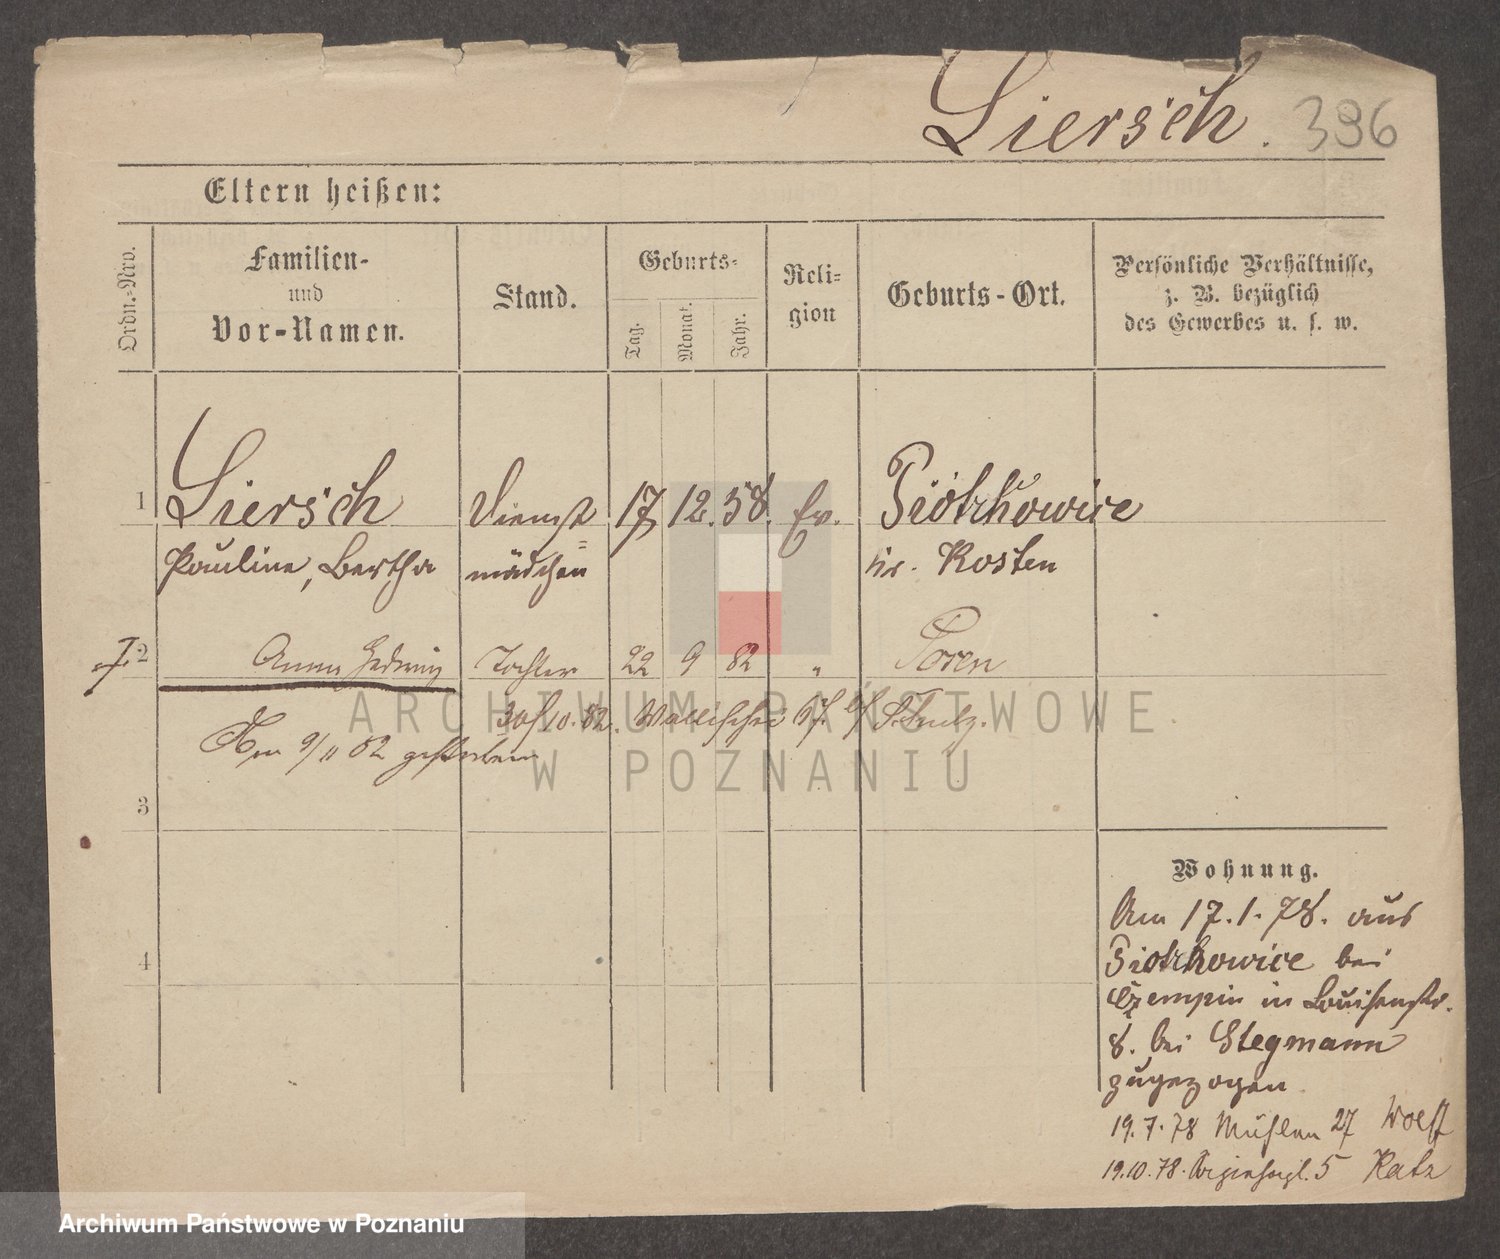 Liersch. 396
Eltern heißen:
Ordn.-Nro.
Familien-
und
Vor-Namen.
Stand.
Geburts-
Tag.
Monat.
Jahr.
Reli-
gion
Geburts-Ort.
Persönliche Verhältnisse,
z. B. bezüglich
des Gewerbes u. s. w.
1 Liersch Dienst 17 12. 58. Ev. Piotrkowice
Pauline, Bertha mädchen Kr. Kosten
† 2 Anna Hedwig Tochter 22 9 82 " Posen
30/10. 82. Wallischei 67. b/ Schulz.
Am 9/11 82 gestorben
3
4
Wohnung.
Am 17.1.78. aus
Piotrkowice bei
Czempin in Louisenstr.
8. bei Stegmann
zugezogen
19.7.78 Mühlen 27 Wolff
19.10.78. 5 Katz
ARCHIWUM PAŃSTWOWE
W POZNANIU
Archiwum Państwowe w Poznaniu